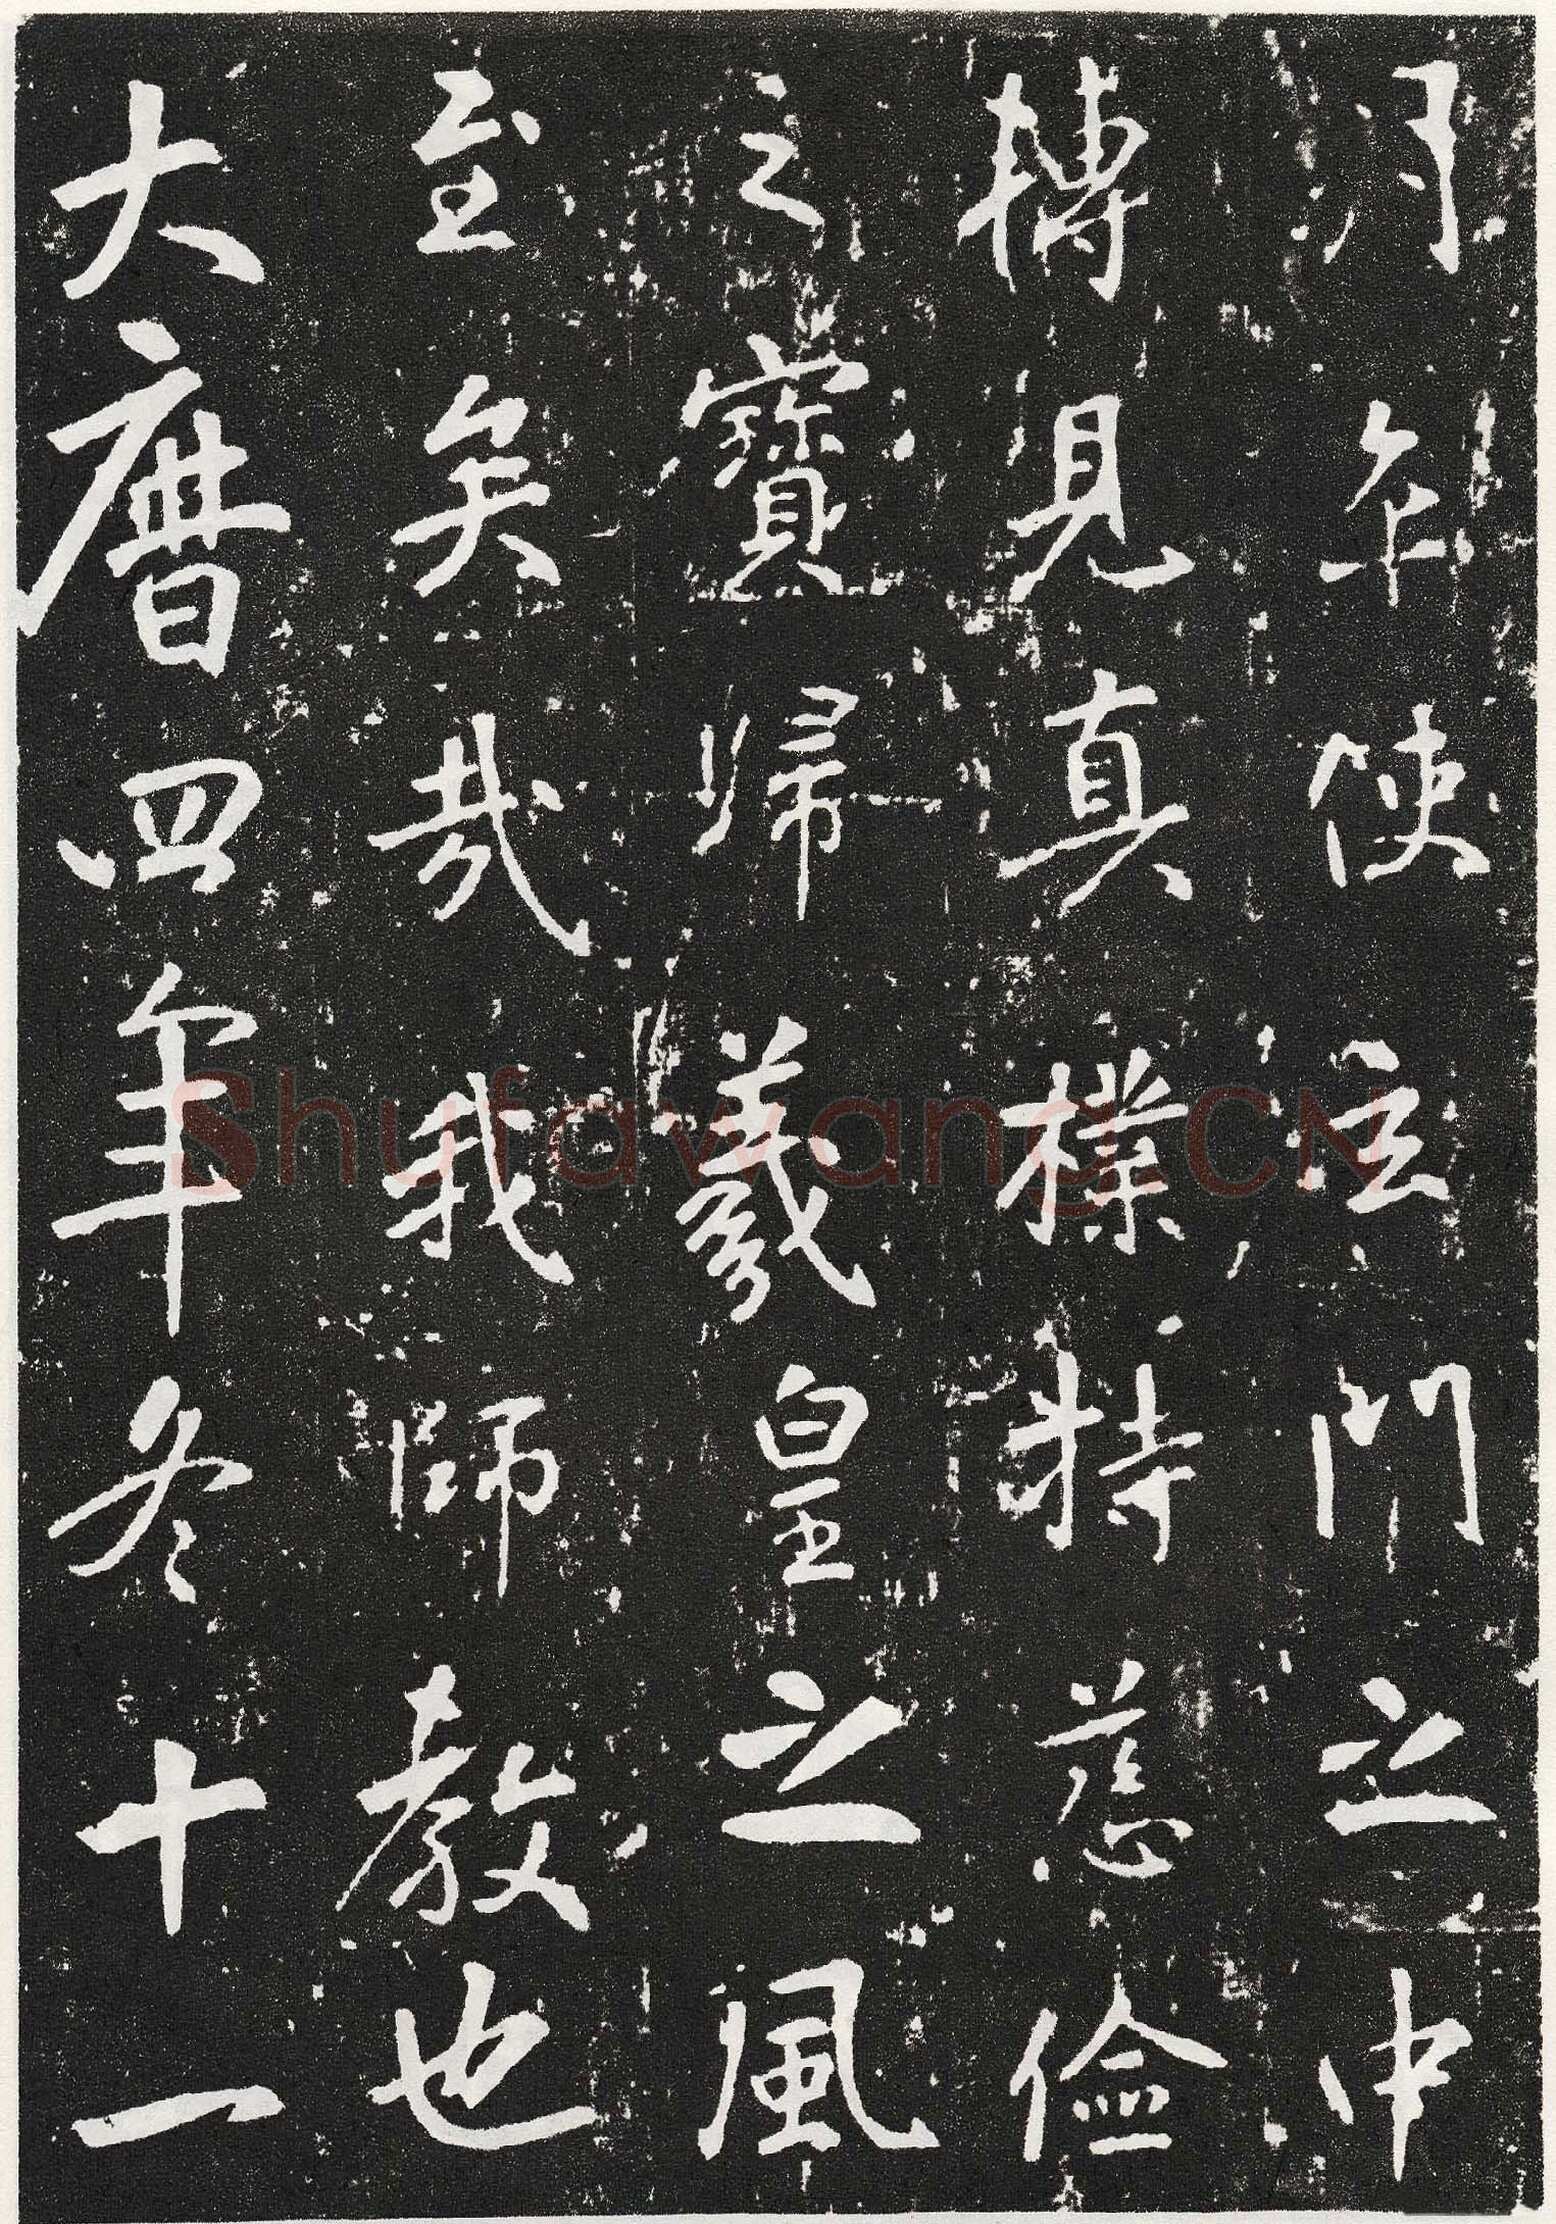 使玄門之中
轉見真樸持慈儉
之寶歸羲皇之風
至矣哉我師教也
大曆四年冬十一
Shufawang.CN